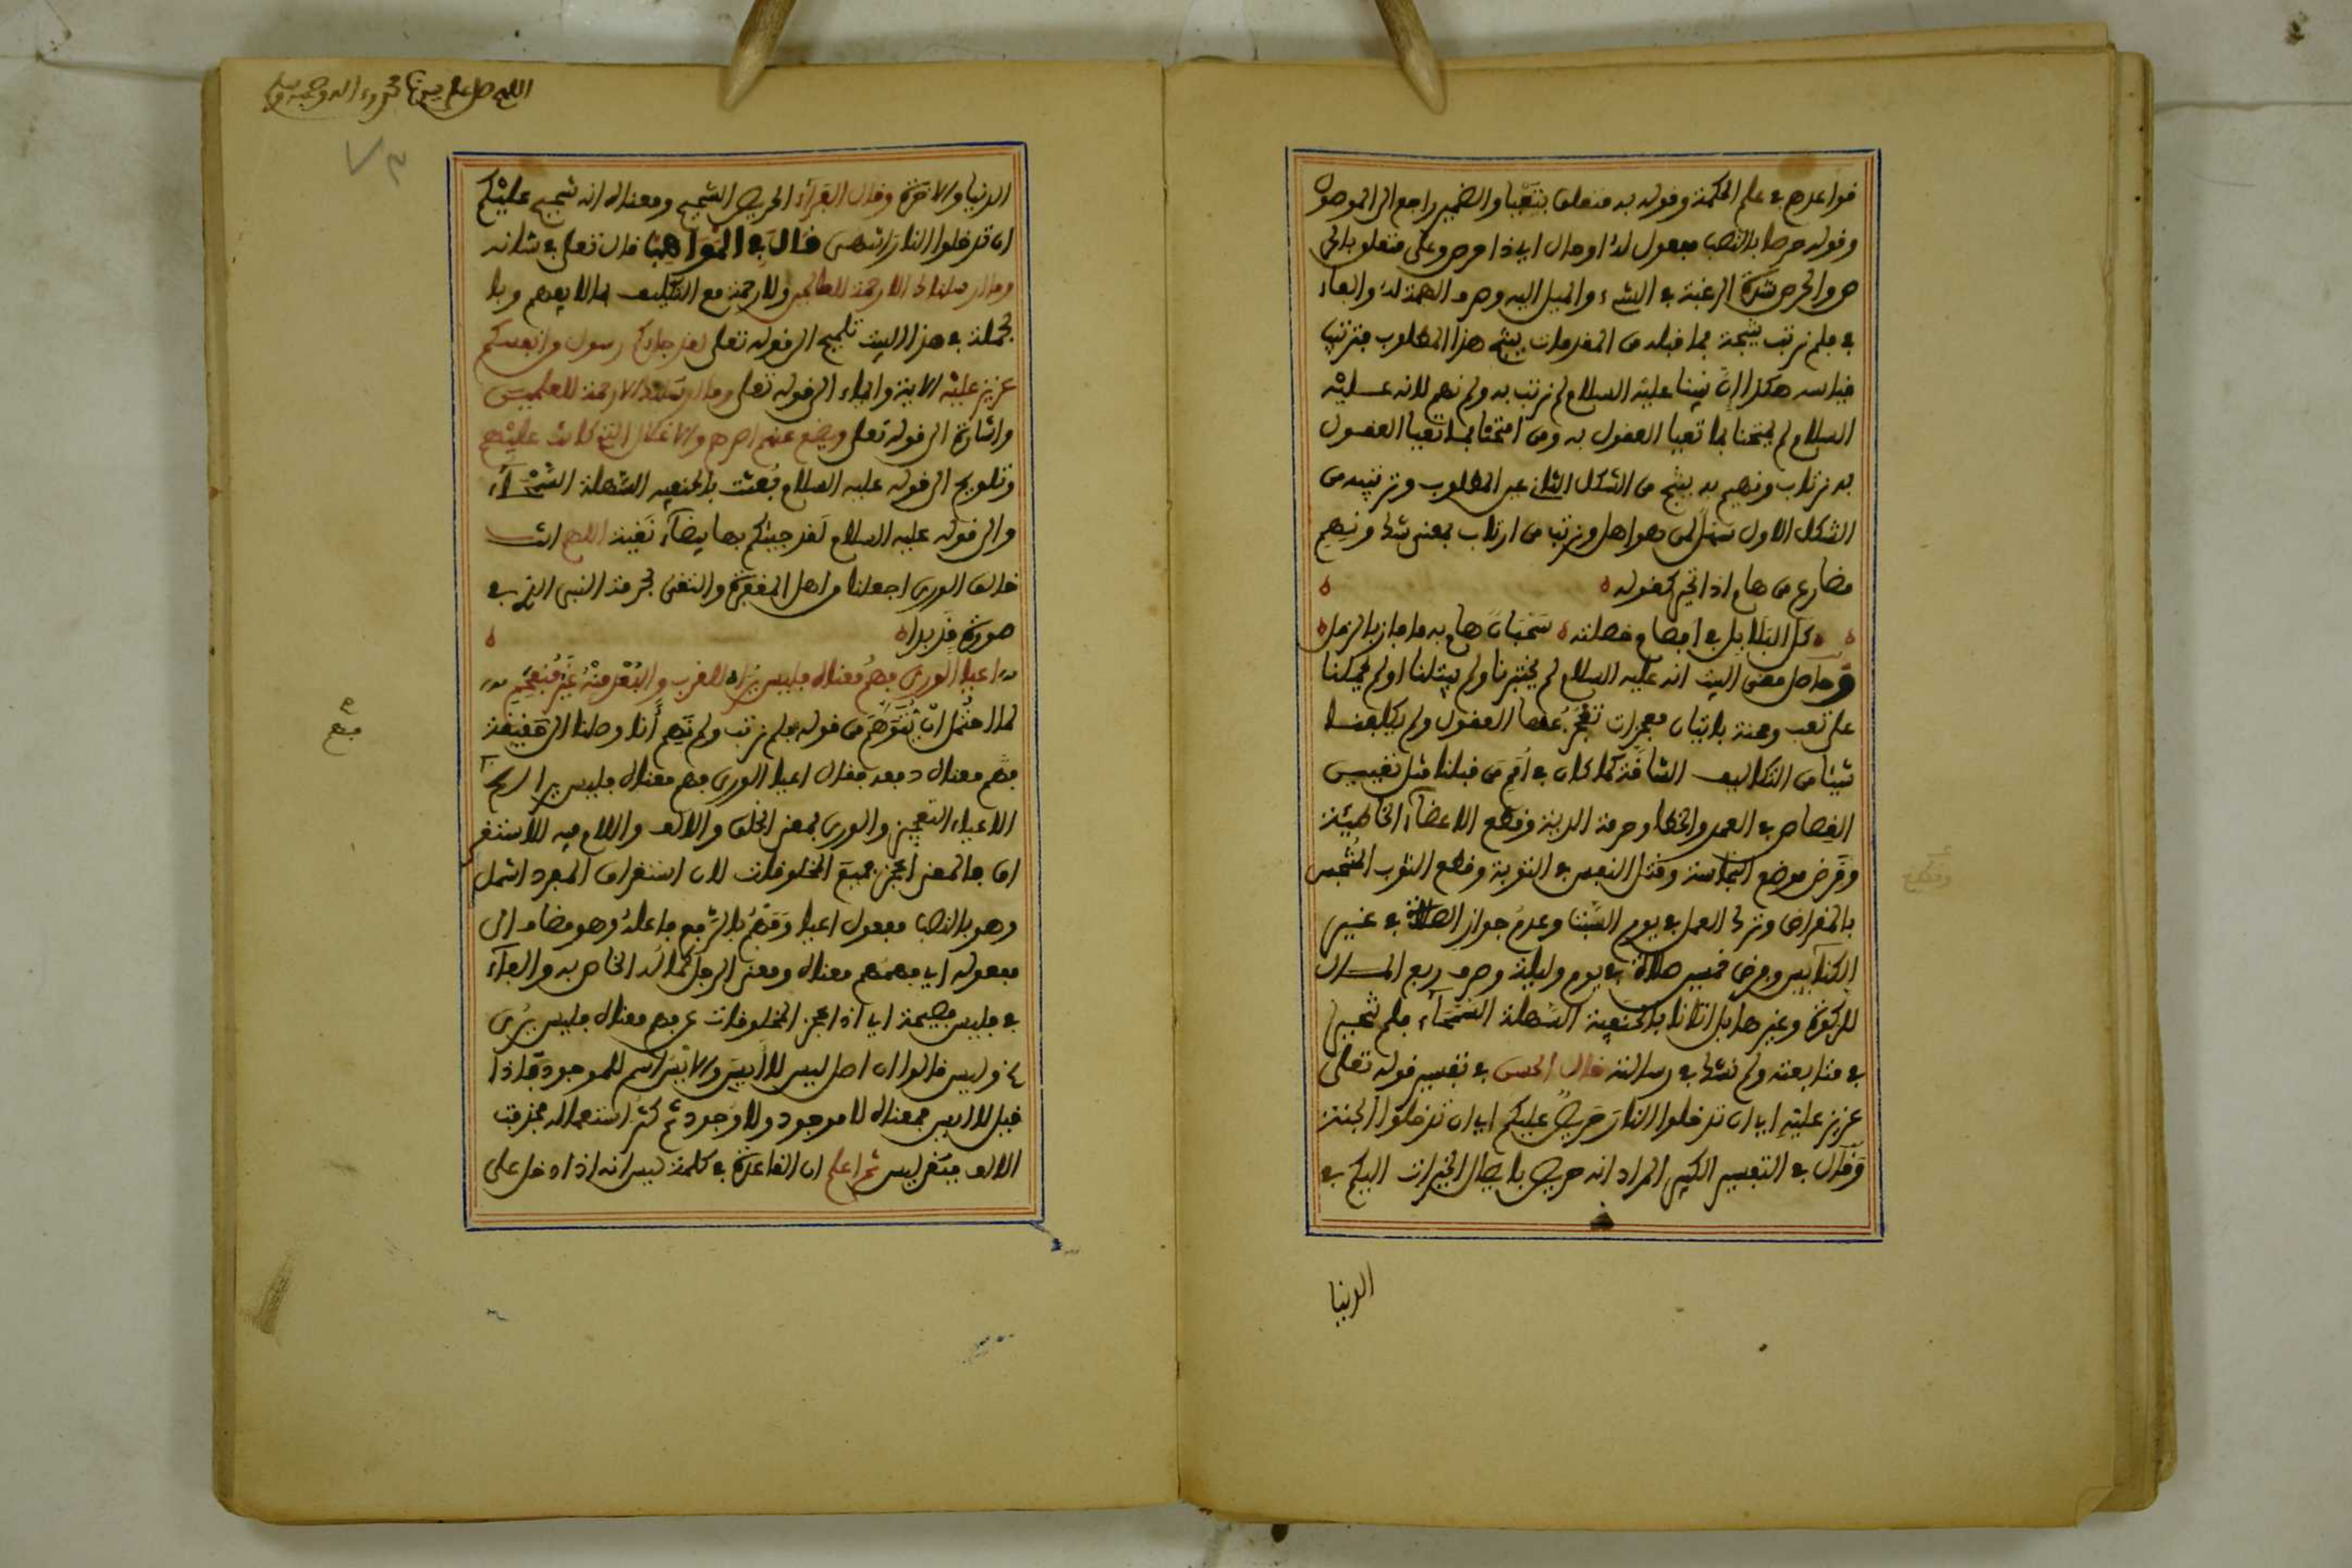 قواعدهم في علم الحكمة وقوله به متعلق بتعيا والضمير راجع الى الموصول
وقوله حرصا بالنصب مفعول له او حال اي ذا حرص وعلى متعلق بالحر
ص والحرص شدة الرغبة في الشيء والميل اليه وصرف الهمة له والفاء
في فلم نرتب نتيجة لما قبله من المقدمات ينتج هذا المطلوب فترتيب
قياسه هكذا ان نبينا عليه السلام لم نرتب به ولم نهم لانه عليه
السلام لم يمتحنا بما تعيا العقول به ومن امتحنا بما تعيا العقول
به نرتاب ونهيم به ينتج من الشكل الثاني عين المطلوب وترتيبه من
الشكل الاول سهل لمن هو اهل ونرتب من ارتاب بمعنى شك ونهم
مضارع من هام اذا تحير كقوله
كل البلابل في افصاح خصلته سحبان هام به ما فاز بالزمل
وحاصل معنى البيت انه عليه السلام لم يختبرنا ولم يبتلنا اولم يمكنا
على تعب ومحنة باتيان معجزات تعجز عنها العقول ولم يكلفنا
شيئا من التكاليف الشاقة كما كان في امم من قبلنا مثل تعيين
القصاص في العمد والخطا وحرمة الدية وقطع الاعضاء الخاطيئة
وقرض موضع النجاسة وقتل النفس في التوبة وقطع الثوب المنجس
بالمقراض وترك العمل في يوم السبت وعدم جواز الصلاة في غير
الكنائس وفرض خمسين صلاة في يوم وليلة وصرف ربع المال
للزكوة وغيرها بل اتانا بالحنيفية السهلة السمحاء فلم نتحير
في متابعته ولم نشك في رسالته قال الحسن في تفسير قوله تعلى
عزيز عليه اي ان تدخلوا النار حريص عليكم اي ان تدخلوا الجنة
وقال في التفسير الكبير المراد انه حريص بايصال الخيرات اليكم في
الدنيا
الدنيا والاخرة وقال الفراء الحريص الشحيح ومعناه انه شحيح عليكم
ان تدخلوا النار انتهى قال في المواهب قال تعلى في شانه
وما ارسلناك الا رحمة للعالمين ولا رحمة مع التكليف بما لا يفهم وبا
لجملة في هذا البيت تلميح الى قوله تعلى لقد جاءكم رسول من انفسكم
عزيز عليه الاية وايماء الى قوله تعلى وما ارسلناك الا رحمة للعلمين
واشارة الى قوله تعلى ويضع عنهم اصرهم والاغلال التي كانت عليهم
وتلويح الى قوله عليه السلام بعثت بالحنيفية السهلة السمحاء
والى قوله عليه السلام لقد جيتكم بها بيضاء نقية اللهم انت
خالق الورى اجعلنا من اهل المغفرة والتقى بحرمة النبي الذي في
صورة قد بدا
اعيا الورى فهم معناه فليس يرى للقرب والبعد منه غير منفحم
لما احتمل ان يتوهم من قوله فلم نرتب ولم نهم أنا وصلنا الى حقيقة
فهم معناه دفعه فقال اعيا الورى فهم معناه فليس يرى
الاعياء التعجيز والورى بمعنى الخلق والالف واللام فيه للاستغر
اق فالمعنى اعجز جميع المخلوقات لان استغراق المفرد اشمل
وهو بالنصب مفعول اعيا وفهم بالرفع فاعله وهو مضاف الى
مفعوله اي فهمهم معناه ومعنى الرجل كماله الخاص به والفاء
في فليس فصيحة اي اذا عجز المخلوقات عن فهم معناه فليس يرى
وليس قالوا ان اصل ليس لا ايس والايس اسم للموجود فاذا
قيل لا ايس فمعناه لا موجود ولا وجود ثم كثر استعماله فحذفت
الالف فبقى ليس ثم اعلم ان القاعدة في كلمة ليس انه اذا دخل على